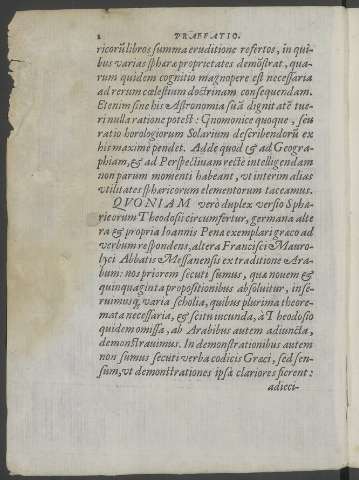 2 PRÆFATIO.
ricorũ libros summa eruditione refertos, in qui-
bus varias sphæræ proprietates demõstrat, qua-
rum quidem cognitio magnopere est necessaria
ad rerum cœlestium doctrinam consequendam.
Etenim sine his Astronomia suã dignitatẽ tue-
ri nulla ratione potest: Gnomonice quoque, seu
ratio horologiorum Solarium describendorũ ex
his maximè pendet. Adde quod & ad Geogra-
phiam, & ad Perspectiuam rectè intelligendam
non parum momenti habeant, vt interim alias
vtilitates sphæricorum elementorum taceamus.
QVONIAM verò duplex versio Sphæ-
ricorum Theodosii circumfertur, germana alte
ra & propria Ioannis Penæ exemplari græco ad
verbum respondens, altera Francisci Mauro-
lyci Abbatis Messanensis ex traditione Ara-
bum: nos priorem secuti sumus, quæ nouem &
quinquaginta propositionibus absoluitur, inse-
ruimusq; varia scholia, quibus plurima theore-
mata necessaria, & scitu iucunda, à Theodosio
quidem omissa, ab Arabibus autem adiuncta,
demonstrauimus. In demonstrationibus autem
non sumus secuti verba codicis Græci, sed sen-
sum, vt demonstrationes ipsæ clariores fierent:
adieci-